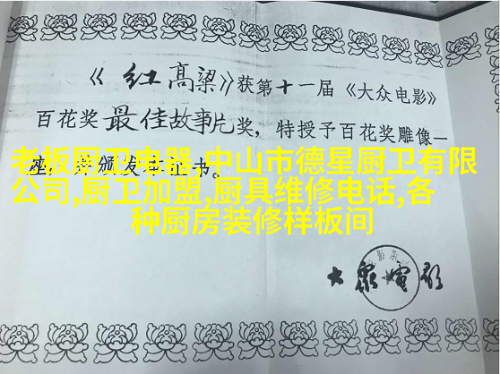 《红高粱》获第十一届《大众电影》
百花奖最佳故事片奖，特授予百花奖雕像一
座，并颁发证书。
老板厨卫电器,中山市德星厨卫有限
公司,厨卫加盟,厨具维修电话,各
种厨房装修样板间
大众电影